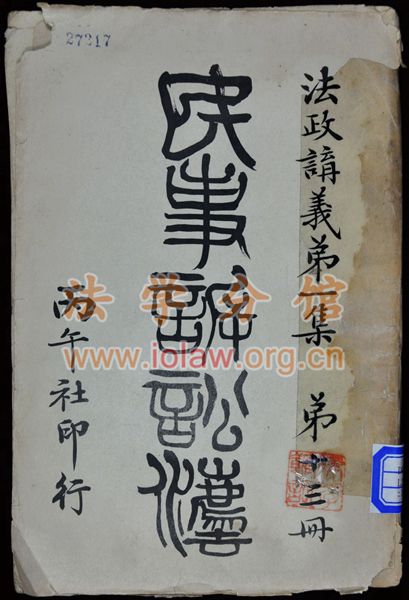 27217
法政講義弟一集　弟十三冊
民事訴訟灋
丙午社印行
法学分馆
www.iolaw.org.cn